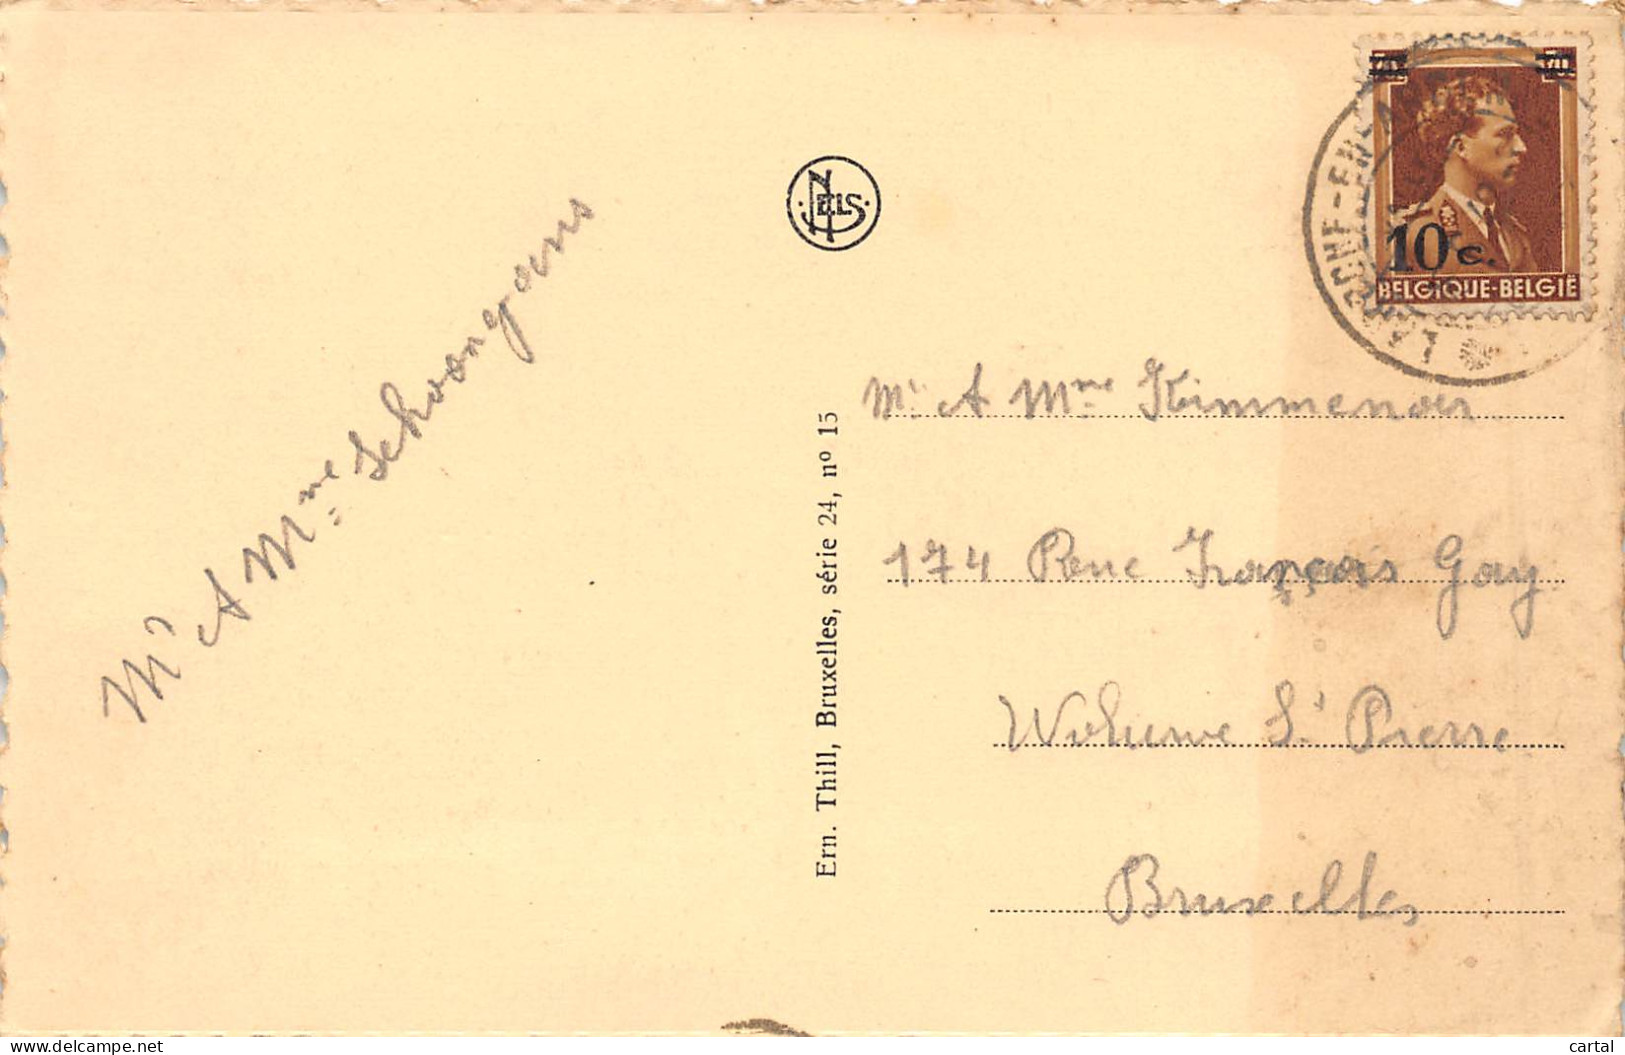 Mr A Mme Schoonjans
NELS
Ern. Thill, Bruxelles, série 24, nº 15
70 70
10 c.
BELGIQUE-BELGIË
LAROCHE-EN-ARDENNE
Mr A Mme Kimmenoir
174 Rue François Gay
Woluwe St Pierre
Bruxelles
https://www.delcampe.net
cartal